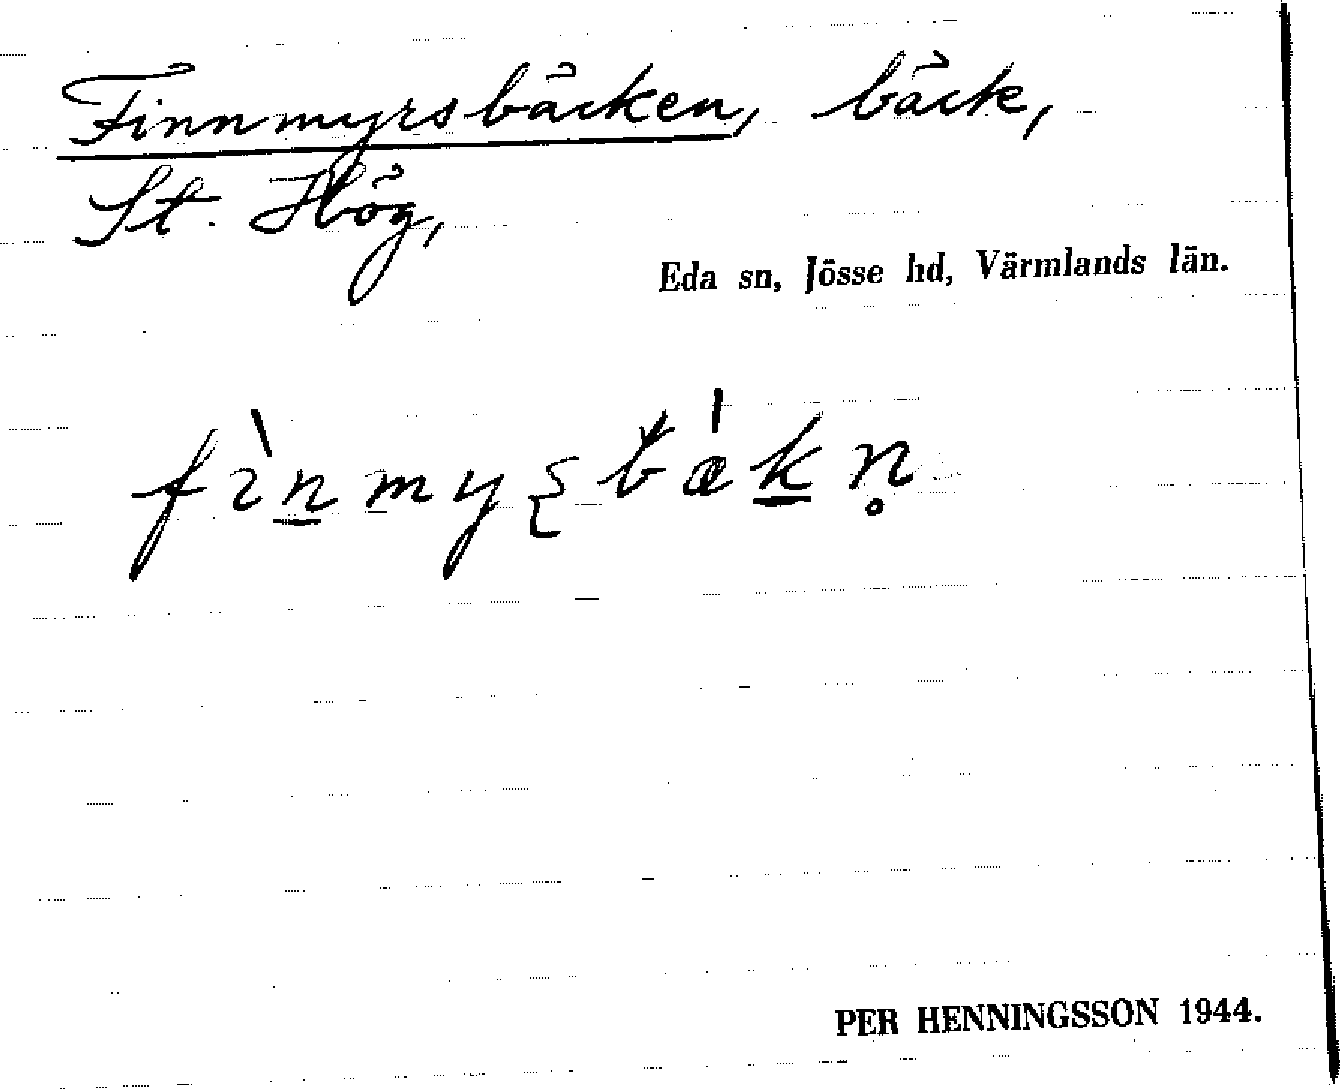 Finnmyrsbäcken, bäck,
St. Hög,
Eda sn, Jösse hd, Värmlands län.
PER HENNINGSSON 1944.